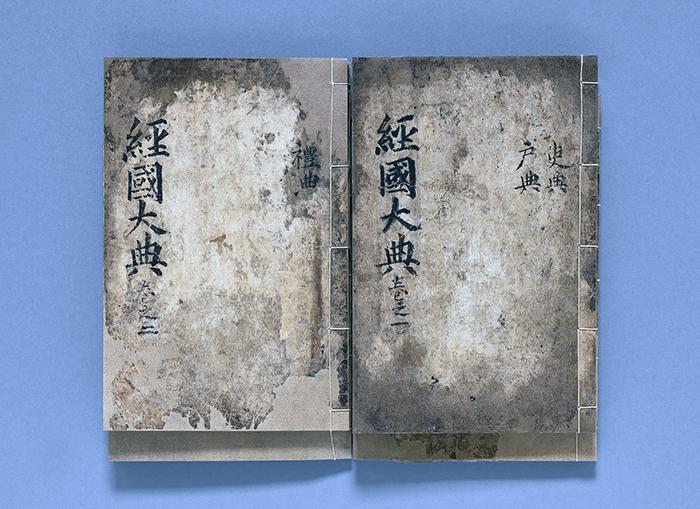 吏典
戶典
經國大典 卷之一
禮典
經國大典 卷之二